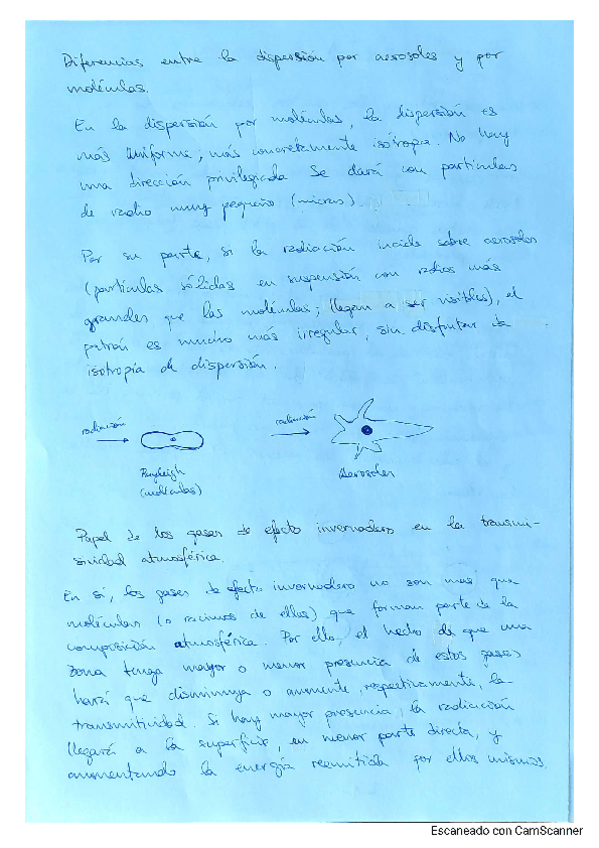 Diferencias entre la dispersión por aerosoles y por
moléculas.
En la dispersión por moléculas, la dispersión es
más uniforme; más concretamente isótropia. No hay
una dirección privilegiada. Se dará con partículas
de radio muy pequeño (micras)
Por su parte, si la radiación incide sobre aerosoles
(partículas sólidas en suspensión con radios más
grandes que las moléculas; llegan a ser visibles), el
patrón es mucho más irregular, sin disfrutar de
isotropía de dispersión.
radiación
radiación
Rayleigh
(moléculas)
Aerosoles
Papel de los gases de efecto invernadero en la transmi-
sividad atmosférica.
En sí, los gases de efecto invernadero no son mas que
moléculas (o racimos de ellas) que forman parte de la
composición atmosférica. Por ello, el hecho de que una
zona tenga mayor o menor presencia de estos gases
hará que disminuya o aumente, respectivamente, la
transmitividad. Si hay mayor presencia, la radiación
llegará a la superficie, en menor parte directa, y
aumentando la energía reemitida por ellos mismos.
Escaneado con CamScanner